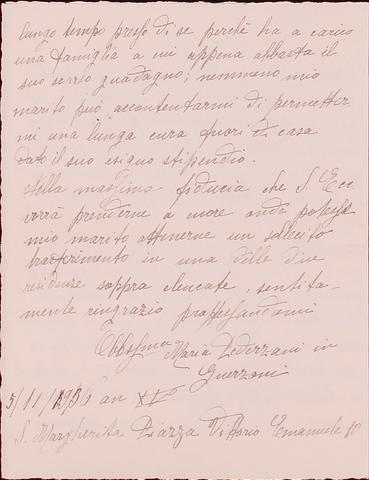 lungo tempo presso di se perchè ha a carico
una famiglia a cui appena abbasta il
suo guadagno; nemmeno mio
marito può accontentarmi di permetter-
mi una lunga cura fuori di casa
dato il suo esiguo stipendio.
Nella massima fiducia che S. Ecc
vorrà prenderne a more onde potesse
mio marito ottenerne un sollecito
trasferimento in una delle due
residenze soppra elencate, sentita-
mente ringrazio professandomi
Obbl.ma Maria Pederzani in
Guerzoni
5/11/1936 an XV°
S. Margherita Piazza Vittorio Emanuele 10